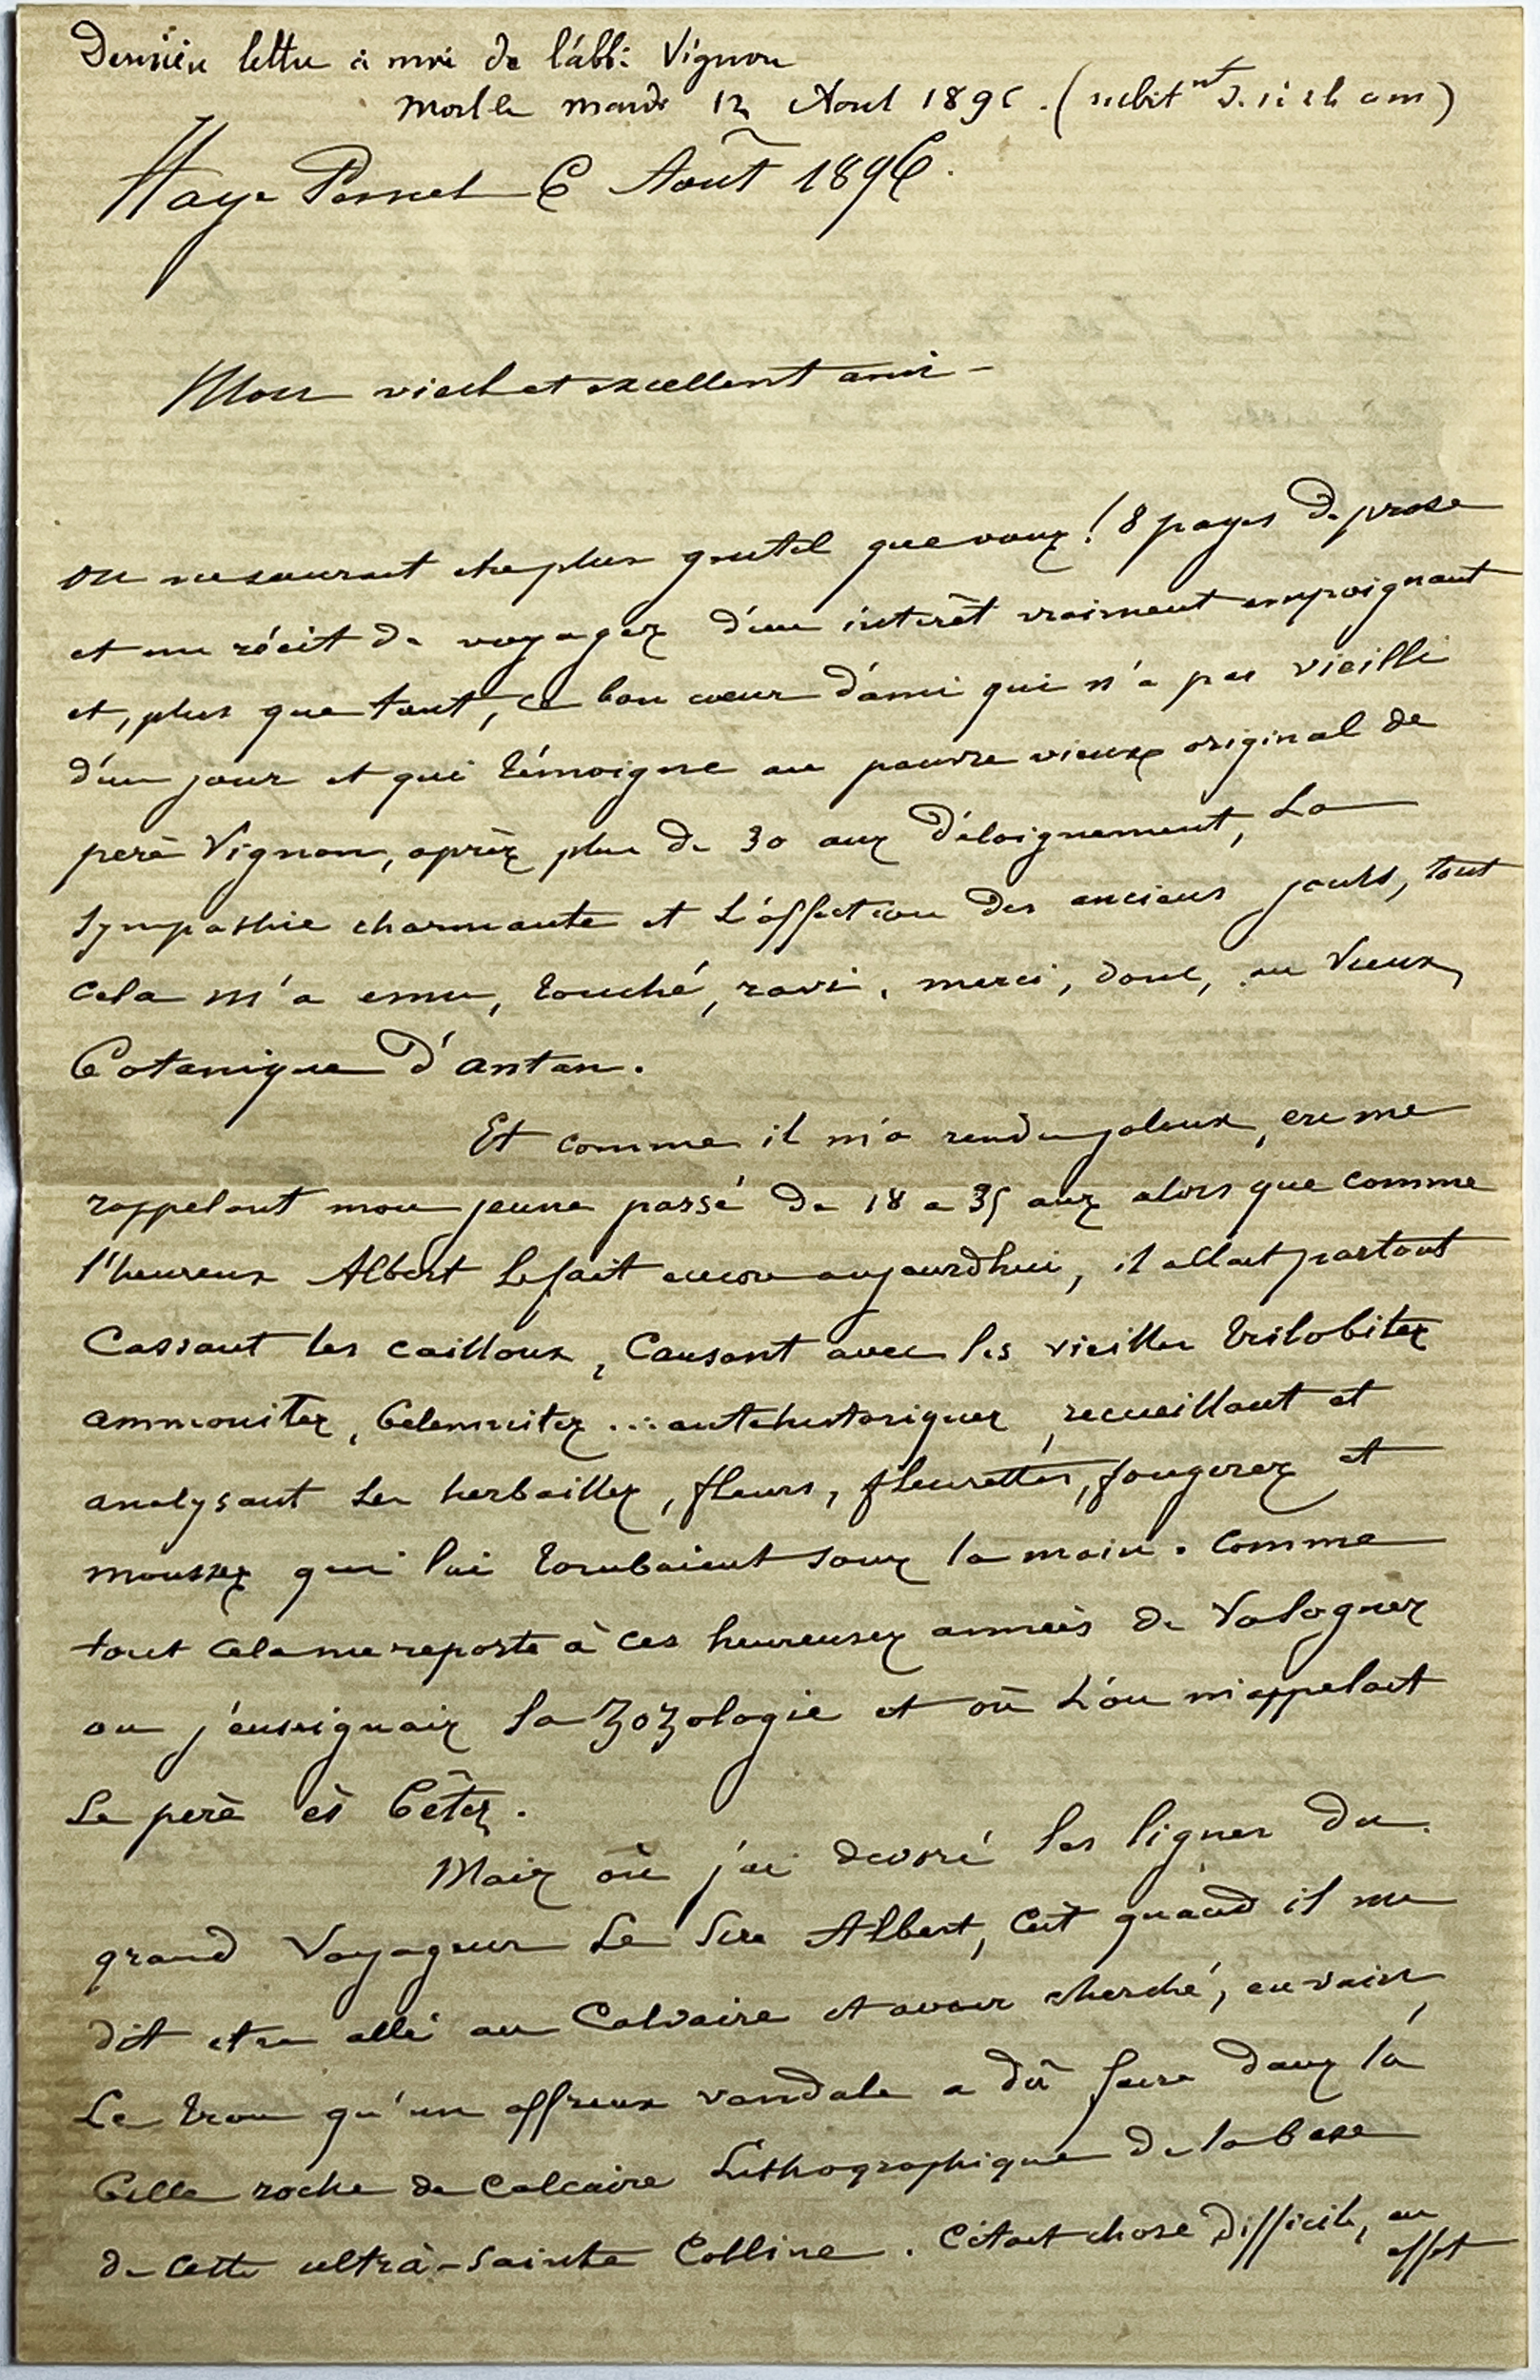 Dernière lettre à moi de l'abbé Vignon
Mort le mardi 12 Aout 1896. (subit nt d. 1 à 2 h am)
Haye Pesnel 6 Août 1896.
Mon vieil et excellent ami -
on ne saurait etre plus gentil que vous! 8 pages de prose
et un récit de voyages d'un intérêt vraiment empoignant
et, plus que tout, ce bon cœur d'ami qui n'a pas vieilli
d'un jour et qui témoigne au pauvre vieux original de
perè Vignon, après plus de 30 ans d'éloignement, La
sympathie charmante et L'affection des anciens jours, tout
cela m'a emu, touché, ravi. merci, donc, au Vieux
Botanique d'antan.
Et comme il m'a rendu jaloux, en me
rappelant mon jeune passé de 18 a 35 ans alors que comme
l'heureux Albert Le fait encore aujourdhui, il allait partout
Cassant les cailloux, Causant avec les vieilles trilobites
ammonites, belemnites ... antehistoriques, recueillant et
analysant Les herbailles, fleurs, fleurettes, fougeres et
mousses qui lui tombaient sous la main. Comme
tout cela me reporte à ces heureuses années de Valognes
ou j'enseignais la Zozologie et où L'on m'appelait
Le perè ès bêtes.
Mais où j'ai devoré les lignes du
grand Voyageur Le Sire Albert, C'est quand il me
dit etre allé au Calvaire et avoir cherché, en vain,
Le trou qu'un affreux vandale a dû faire dans la
belle roche de Calcaire Lithographique de la base
de cette ultrà-sainte Colline. C'était chose difficile, en
effet